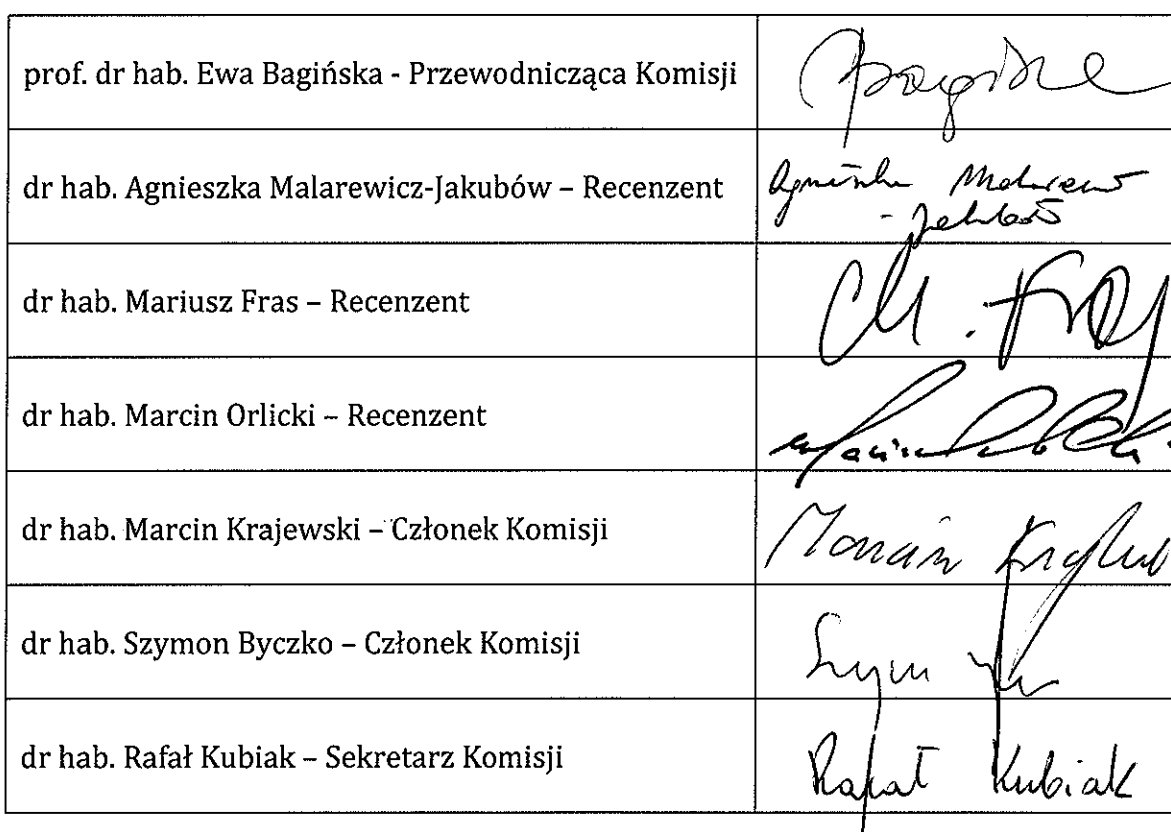 prof. dr hab. Ewa Bagińska - Przewodnicząca Komisji
dr hab. Agnieszka Malarewicz-Jakubów – Recenzent
dr hab. Mariusz Fras – Recenzent
M. Fras
dr hab. Marcin Orlicki – Recenzent
dr hab. Marcin Krajewski – Członek Komisji
Marcin
dr hab. Szymon Byczko – Członek Komisji
dr hab. Rafał Kubiak – Sekretarz Komisji
Rafał Kubiak